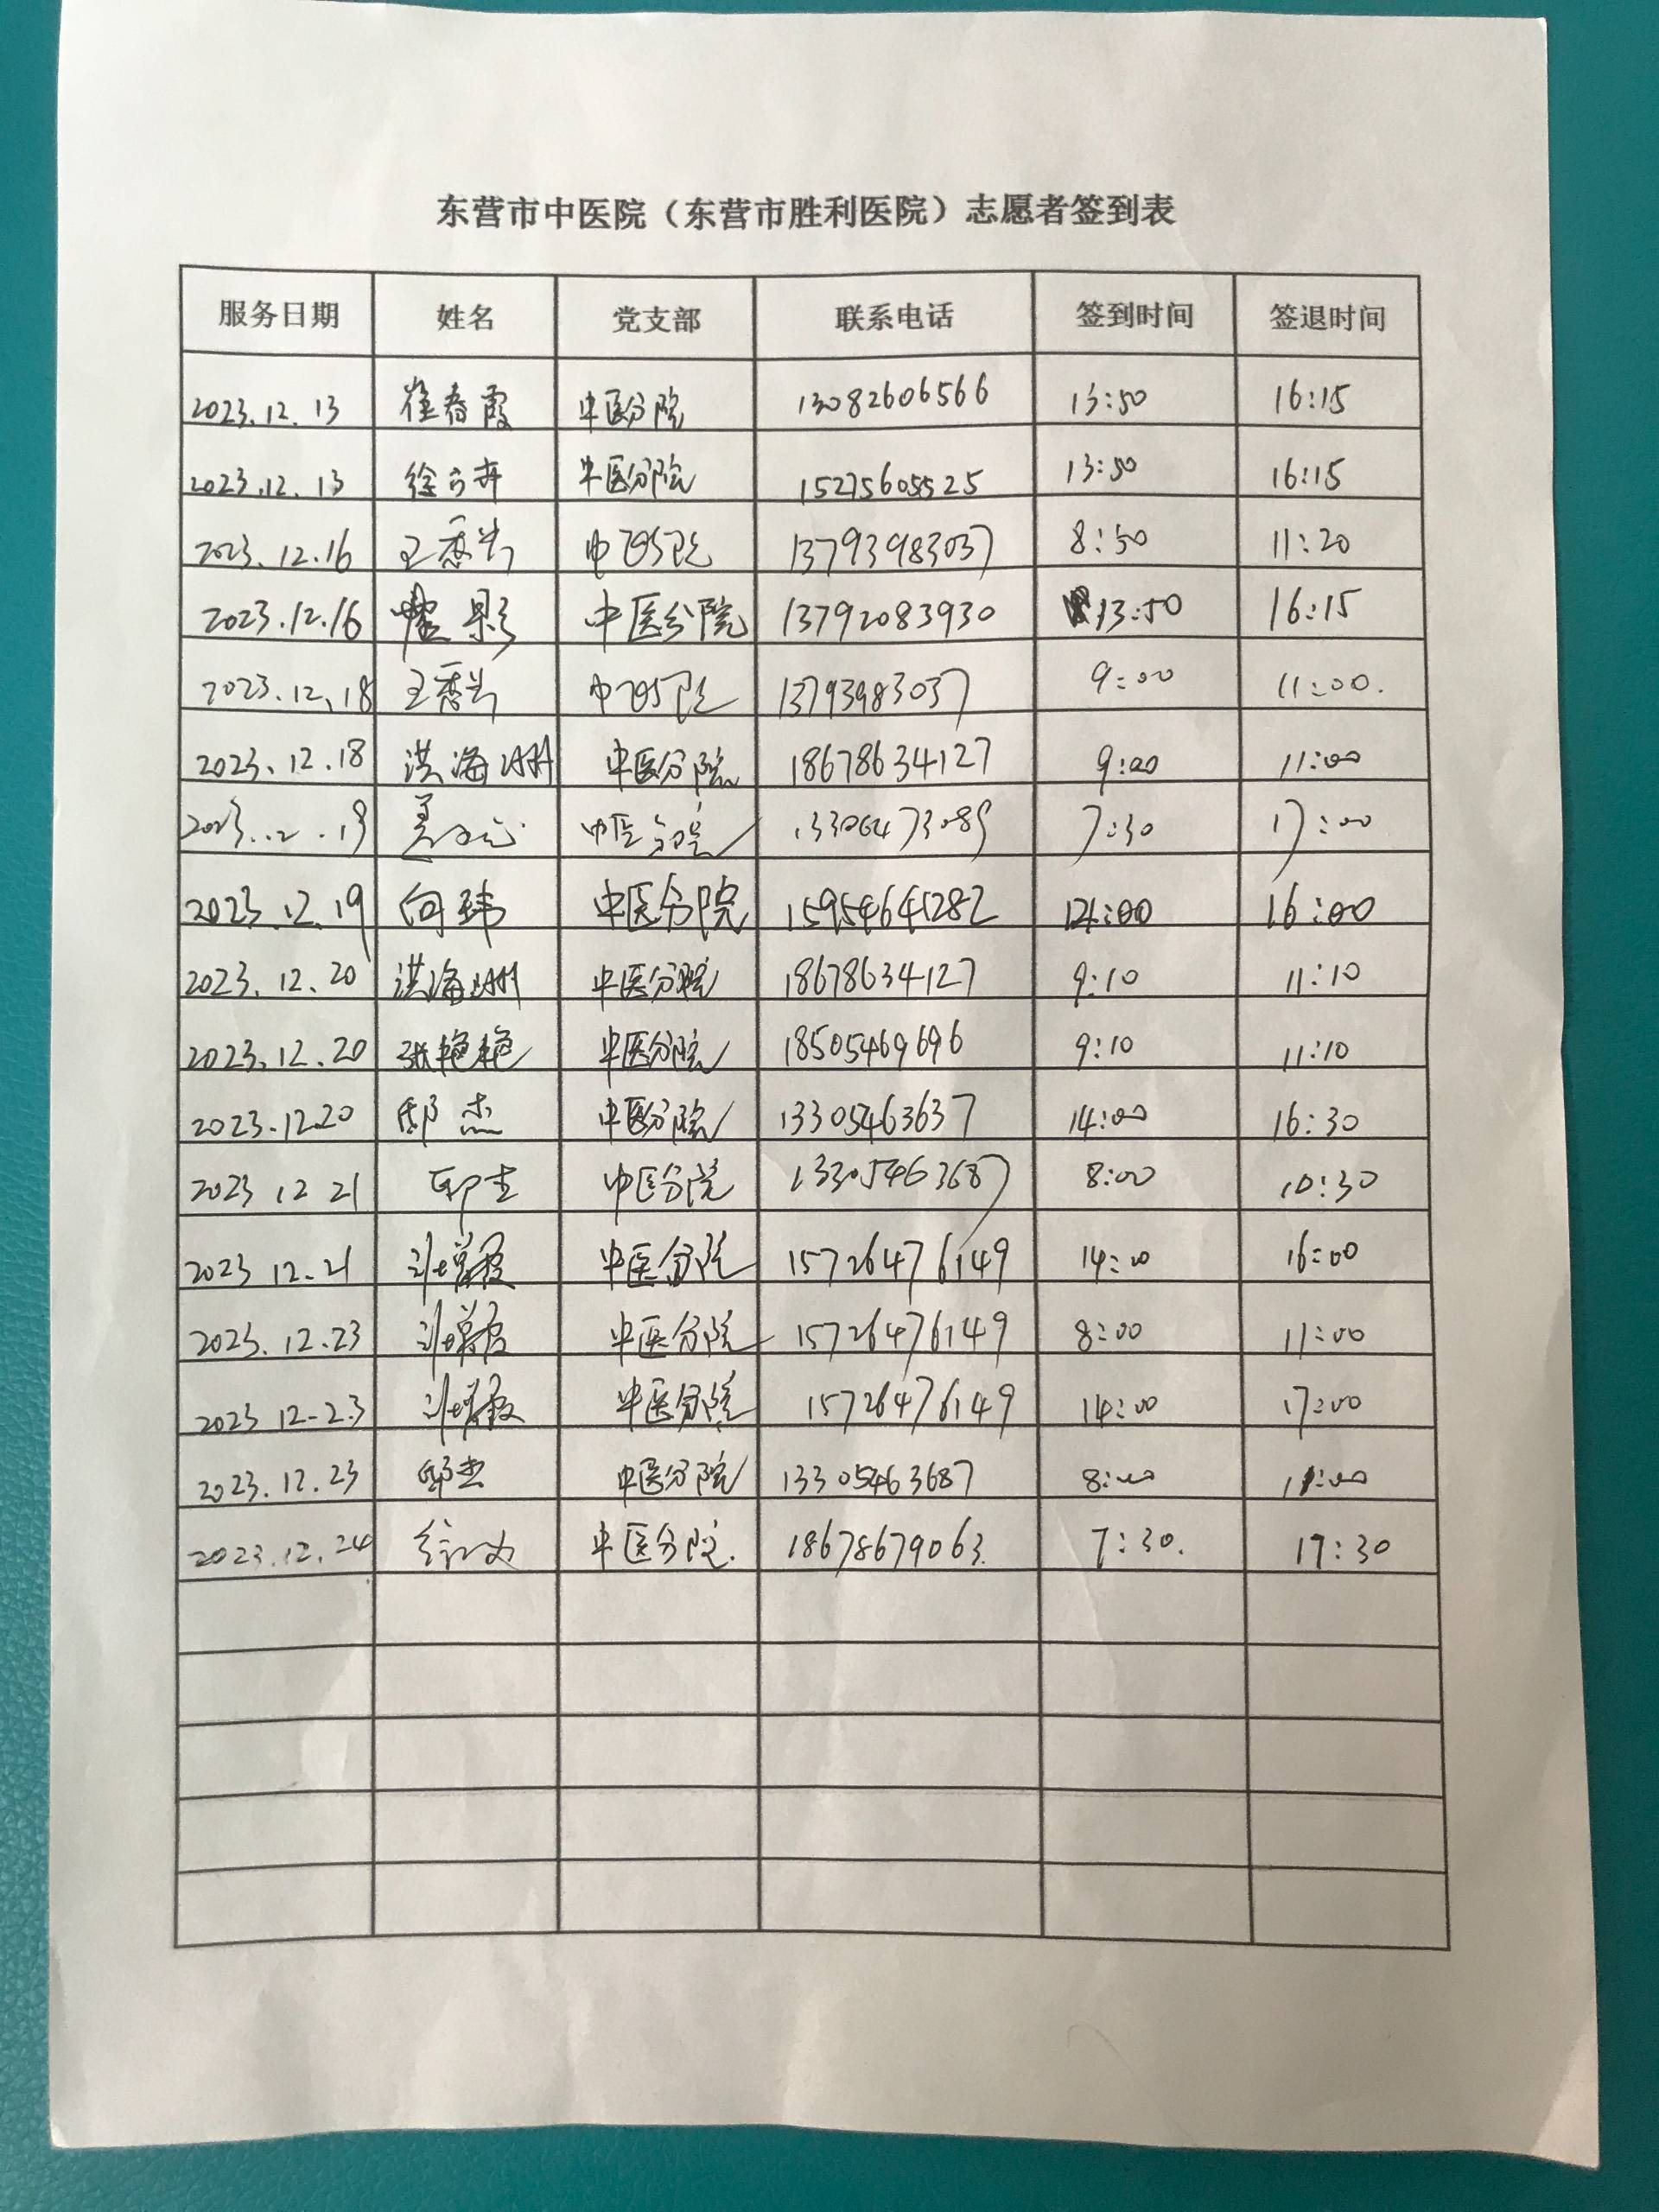 东营市中医院（东营市胜利医院）志愿者签到表
服务日期 姓名 党支部 联系电话 签到时间 签退时间
2023.12.13 崔春霞 中医分院 13082606566 13:50 16:15
2023.12.13 徐 中医分院 15275605525 13:50 16:15
2023.12.16 王秀兰 中医分院 13793983037 8:50 11:20
2023.12.16 影 中医分院 13792083930 13:50 16:15
2023.12.18 王秀兰 中医分院 13793983037 9:00 11:00.
2023.12.18 洪海洲 中医分院 18678634127 9:00 11:00
2023.12.19 中医分院 13306473089 7:30 17:00
2023.12.19 向玮 中医分院 15954641282 14:00 16:00
2023.12.20 洪海洲 中医分院 18678634127 9:10 11:10
2023.12.20 张艳艳 中医分院 18505469696 9:10 11:10
2023.12.20 邸杰 中医分院 13305463637 14:00 16:30
2023 12 21 邸杰 中医分院 13305463687 8:00 10:30
2023 12.21 刘增霞 中医分院 15726476149 14:00 16:00
2023.12.23 刘增霞 中医分院 15726476149 8:00 11:00
2023 12-23 刘增霞 中医分院 15726476149 14:00 17:00
2023.12.23 邸杰 中医分院 13305463687 8:00 11:00
2023.12.24 中医分院. 18678679063. 7:30. 17:30